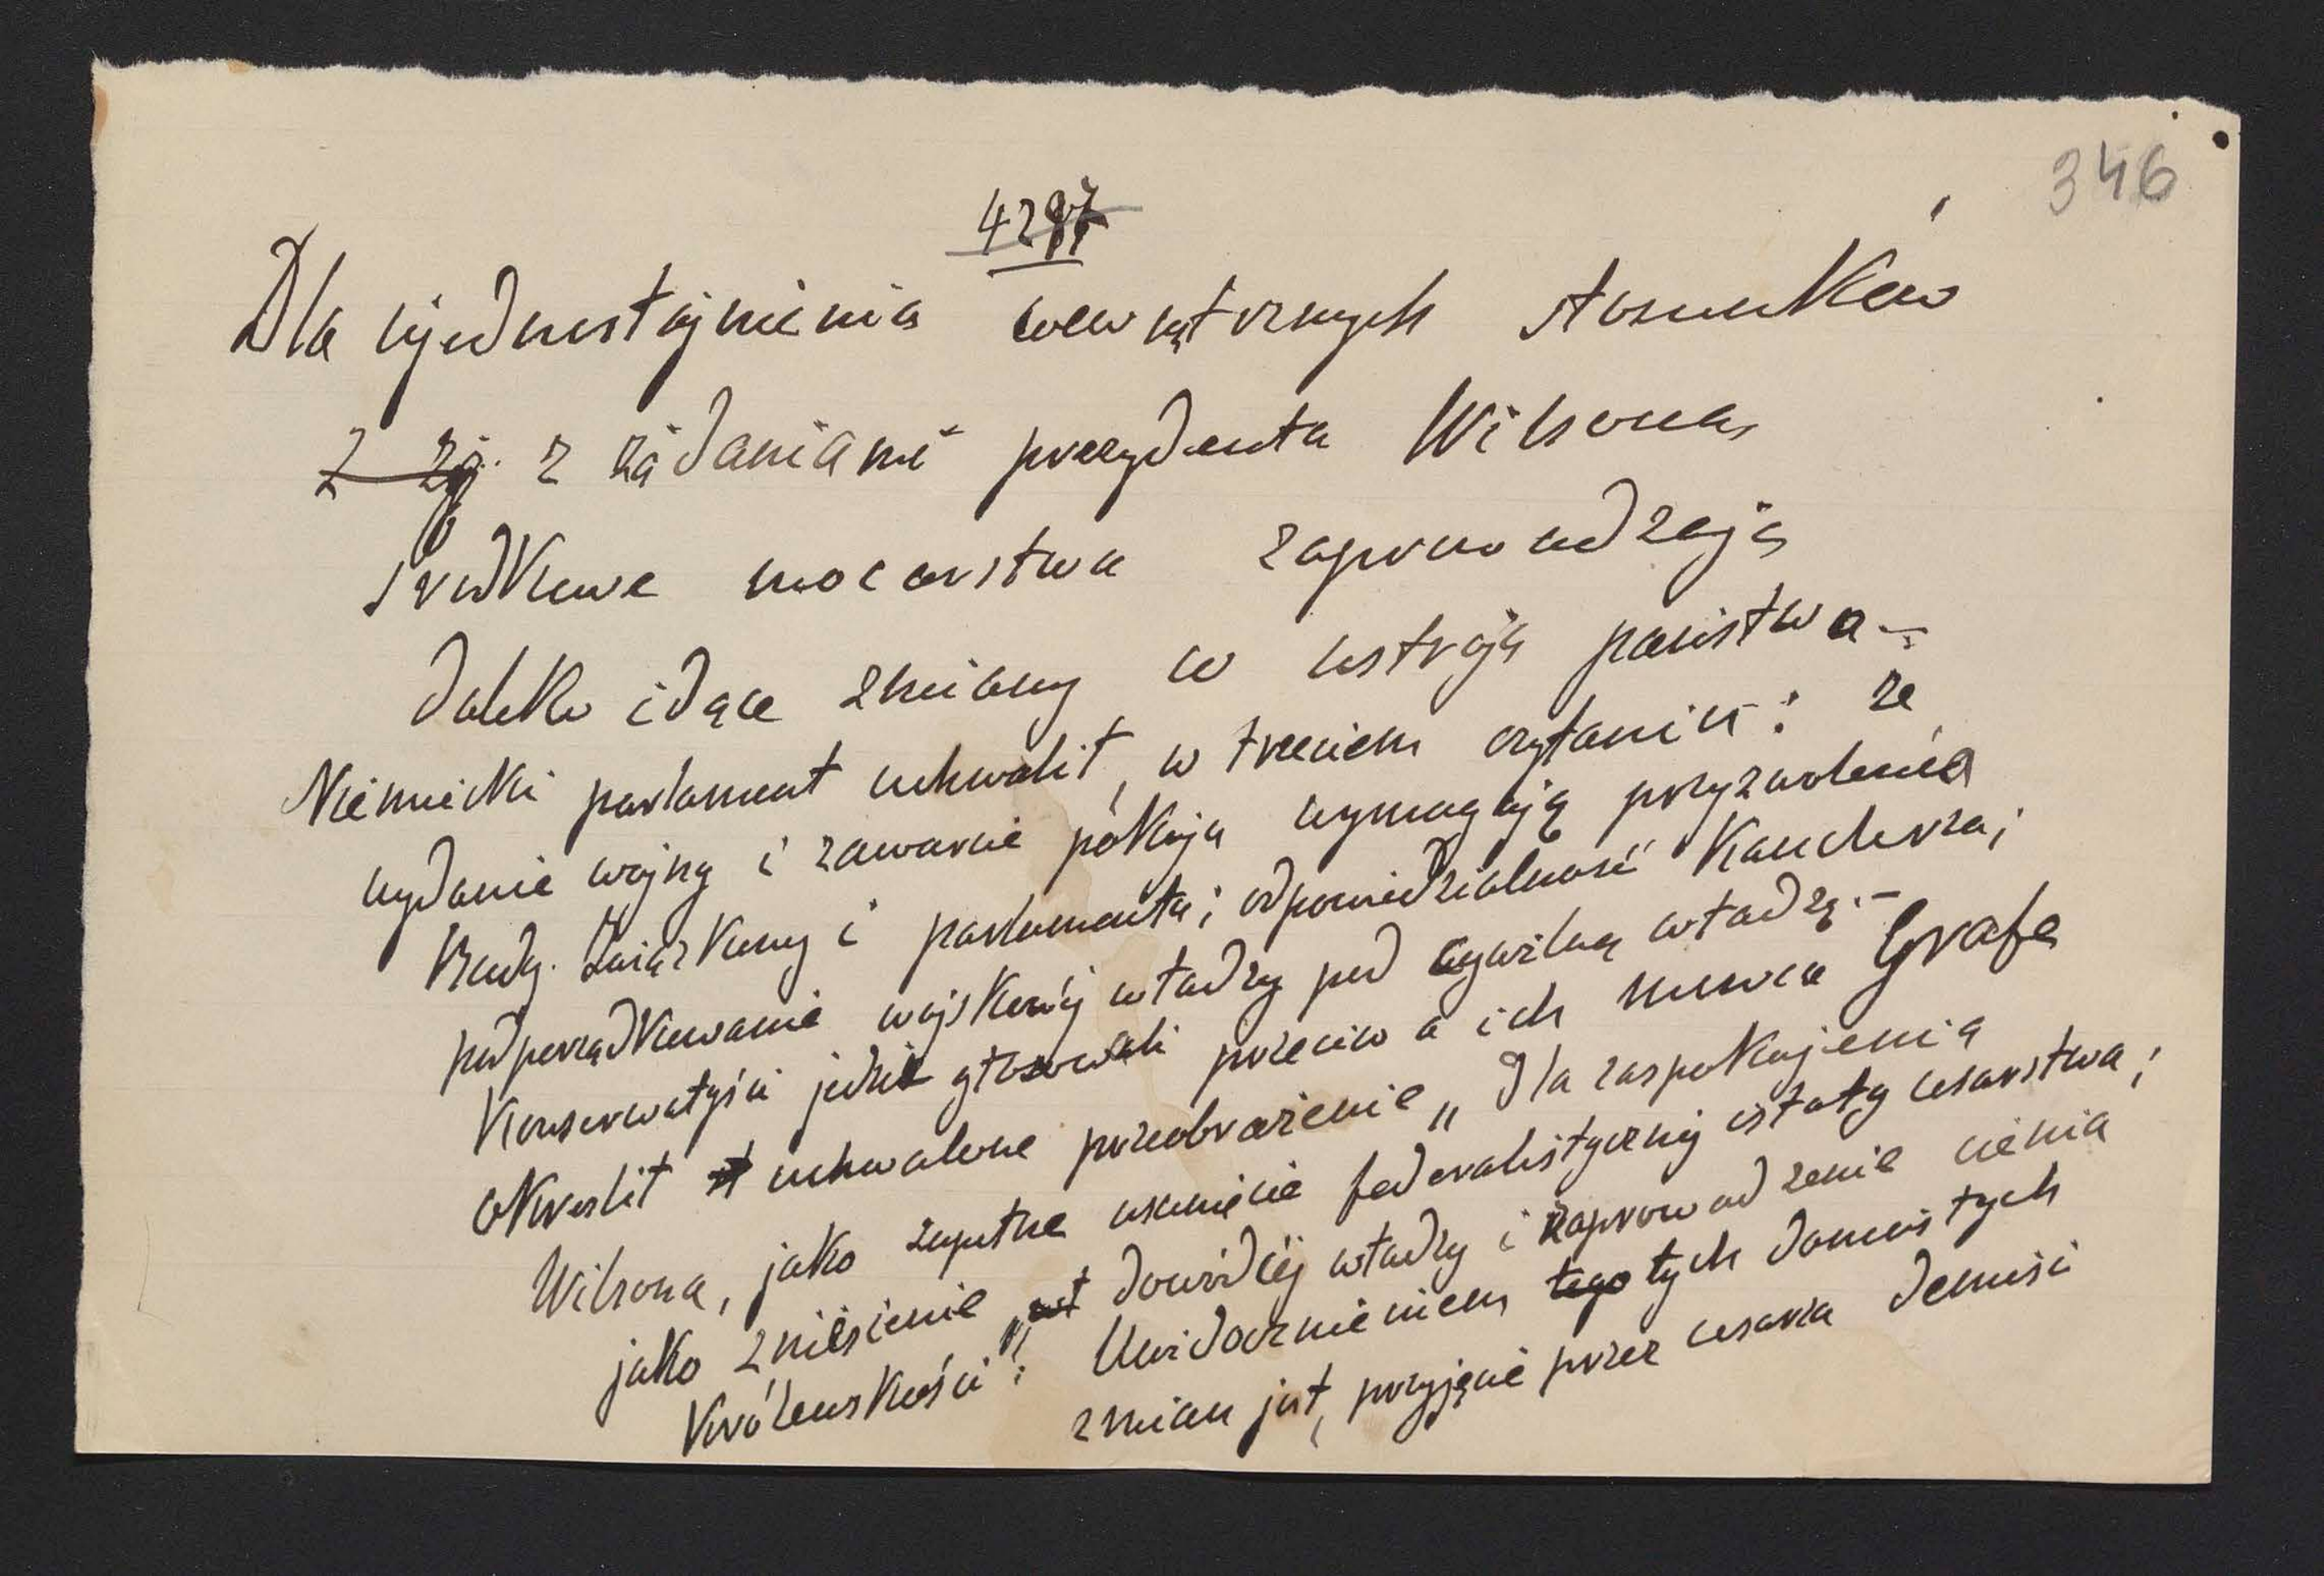 346
4297
Dla ujednostajnienia wewnątrznych stosunków
z żą z żądaniami prezydenta Wilsona,
środkowe mocarstwa zaprowadzają
daleko idące zmiany w ustroju państwa –
Niemiecki parlament uchwalił, w trzeciem czytaniu: że
wydanie wojny i zawarcie pokoju wymagają przyzwolenia
Rady Związkowej i parlamentu; odpowiedzialność Kanclerza;
podporządkowanie wojskowej władzy pod cywilną władzę. –
Konserwatyści jedni głosowali przeciw a ich mowca Grafe
określił uchwalone przeobrażenie „Dla zaspokojenia
Wilsona, jako zupełne usunięcie federalistycznej istoty cesarstwa;
jako zniesienie dowódczej władzy i zaprowadzenie cienia
Królewskości"; Uwidocznieniem tego tych doniosłych
zmian jest, przyjęcie przez cesarza demisi